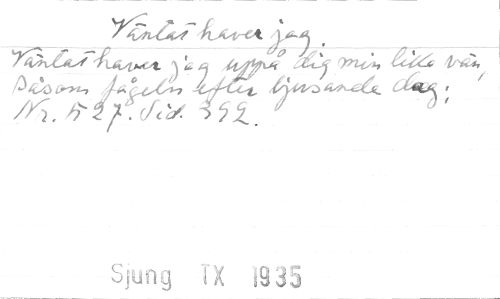 Väntat haver jag.
Väntat haver jag uppå dig min lilla vän,
såsom fågeln efter ljusande dag;
Nr. 527. Sid. 392.
Sjung TX 1935